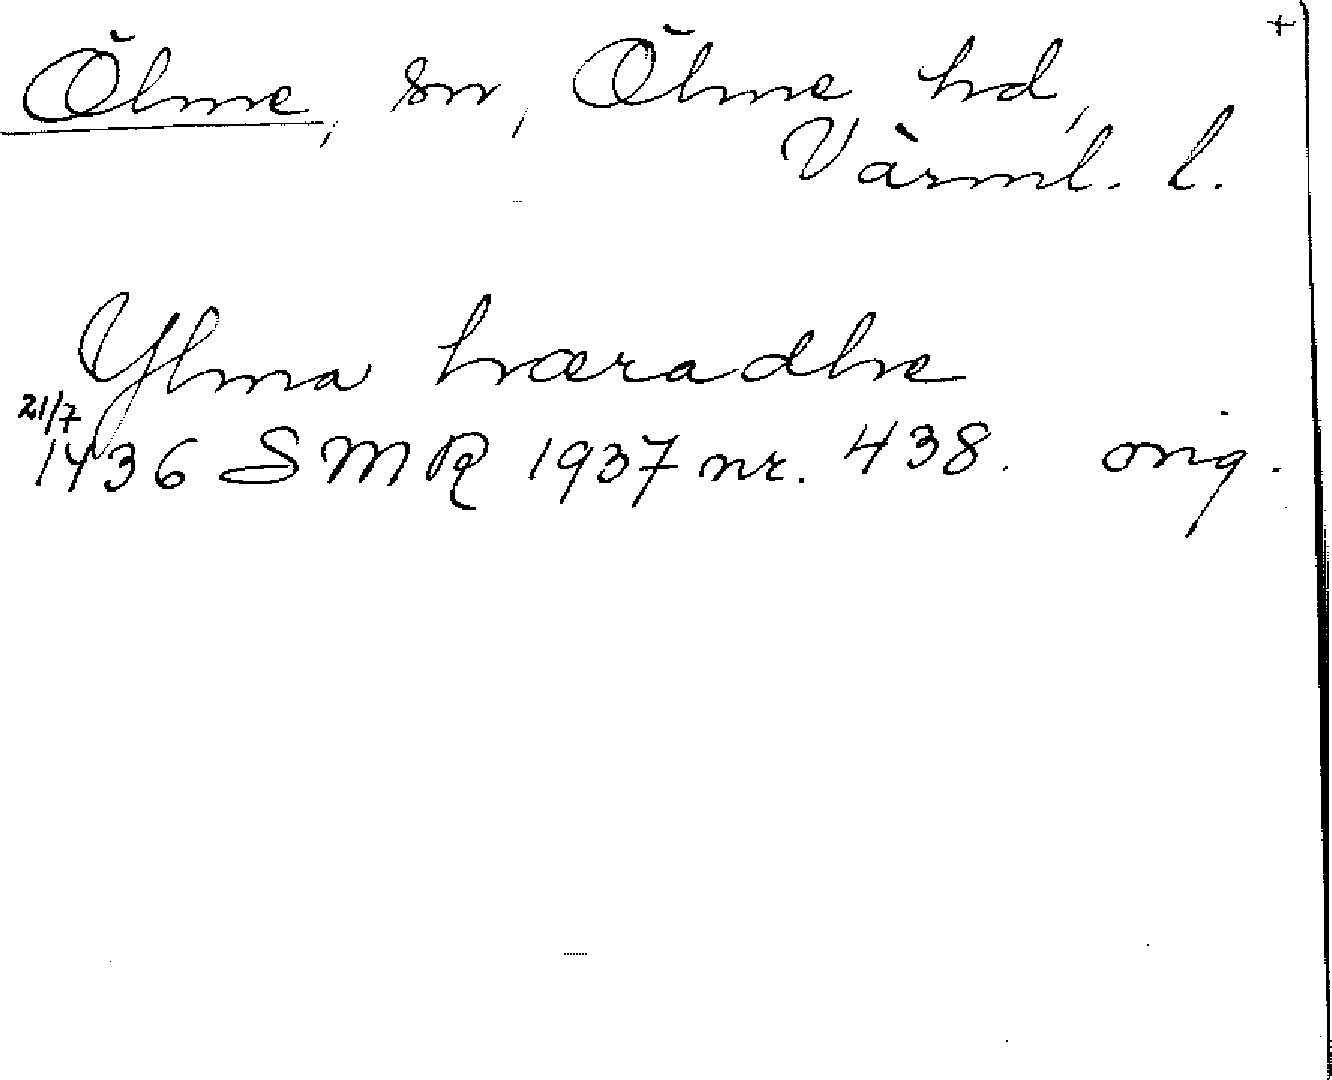 +
Ölme, sn, Ölme hd,
Värml. l.
Ylma hæradhe
21/7
1436 SMR 1937 nr. 438. orig.